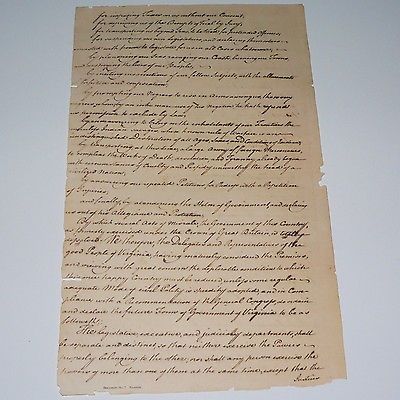 for imposing Taxes on us without our Consent;
for depriving us of the Benefits of Trial by Jury;
for transporting us beyond Seas, to be tried for pretended Offences;
for suspending our own Legislatures, and declaring themselves
invested with power to legislate for us in all Cases whatsoever;
by plundering our Seas, ravaging our Coasts, burning our Towns,
and destroying the Lives of our People;
by inciting insurrections of our fellow Subjects, with the allurements
of forfeiture and confiscation;
by prompting our Negroes to rise in Arms among us, those very
Negroes whom, by an inhuman use of his negative he hath refused
us permission to exclude by Law;
by endeavouring to bring on the inhabitants of our Frontiers the
merciless Indian Savages, whose known rule of Warfare is an
undistinguished Destruction of all Ages, Sexes, and Conditions of Existence;
by transporting, at this time, a large Army of foreign Mercenaries,
to complete the Works of Death, desolation, and Tyranny, already begun
with circumstances of Cruelty and Perfidy unworthy the head of a
civilized Nation;
by answering our repeated Petitions for Redress with a Repetition
of Injuries;
and finally, by abandoning the Helm of Government, and declaring
us out of his Allegiance and Protection.
By which several Acts of Misrule, the Government of this Country,
as formerly exercised under the Crown of Great Britain, is totally
dissolved. We therefore, the Delegates and Representatives of the
good People of Virginia, having maturely considered the Premises,
and viewing with great concern the deplorable condition to which
this once happy Country must be reduced, unless some regular
adequate Mode of civil Polity is speedily adopted, and in Com-
pliance with a Recommendation of the General Congress, do ordain
and declare the future Form of Government of Virginia to be as
followeth:
The legislative, executive, and judiciary departments, shall
be separate and distinct, so that neither exercise the Powers
properly belonging to the other; nor shall any person exercise the
powers of more than one of them at the same time, except that the
Justices